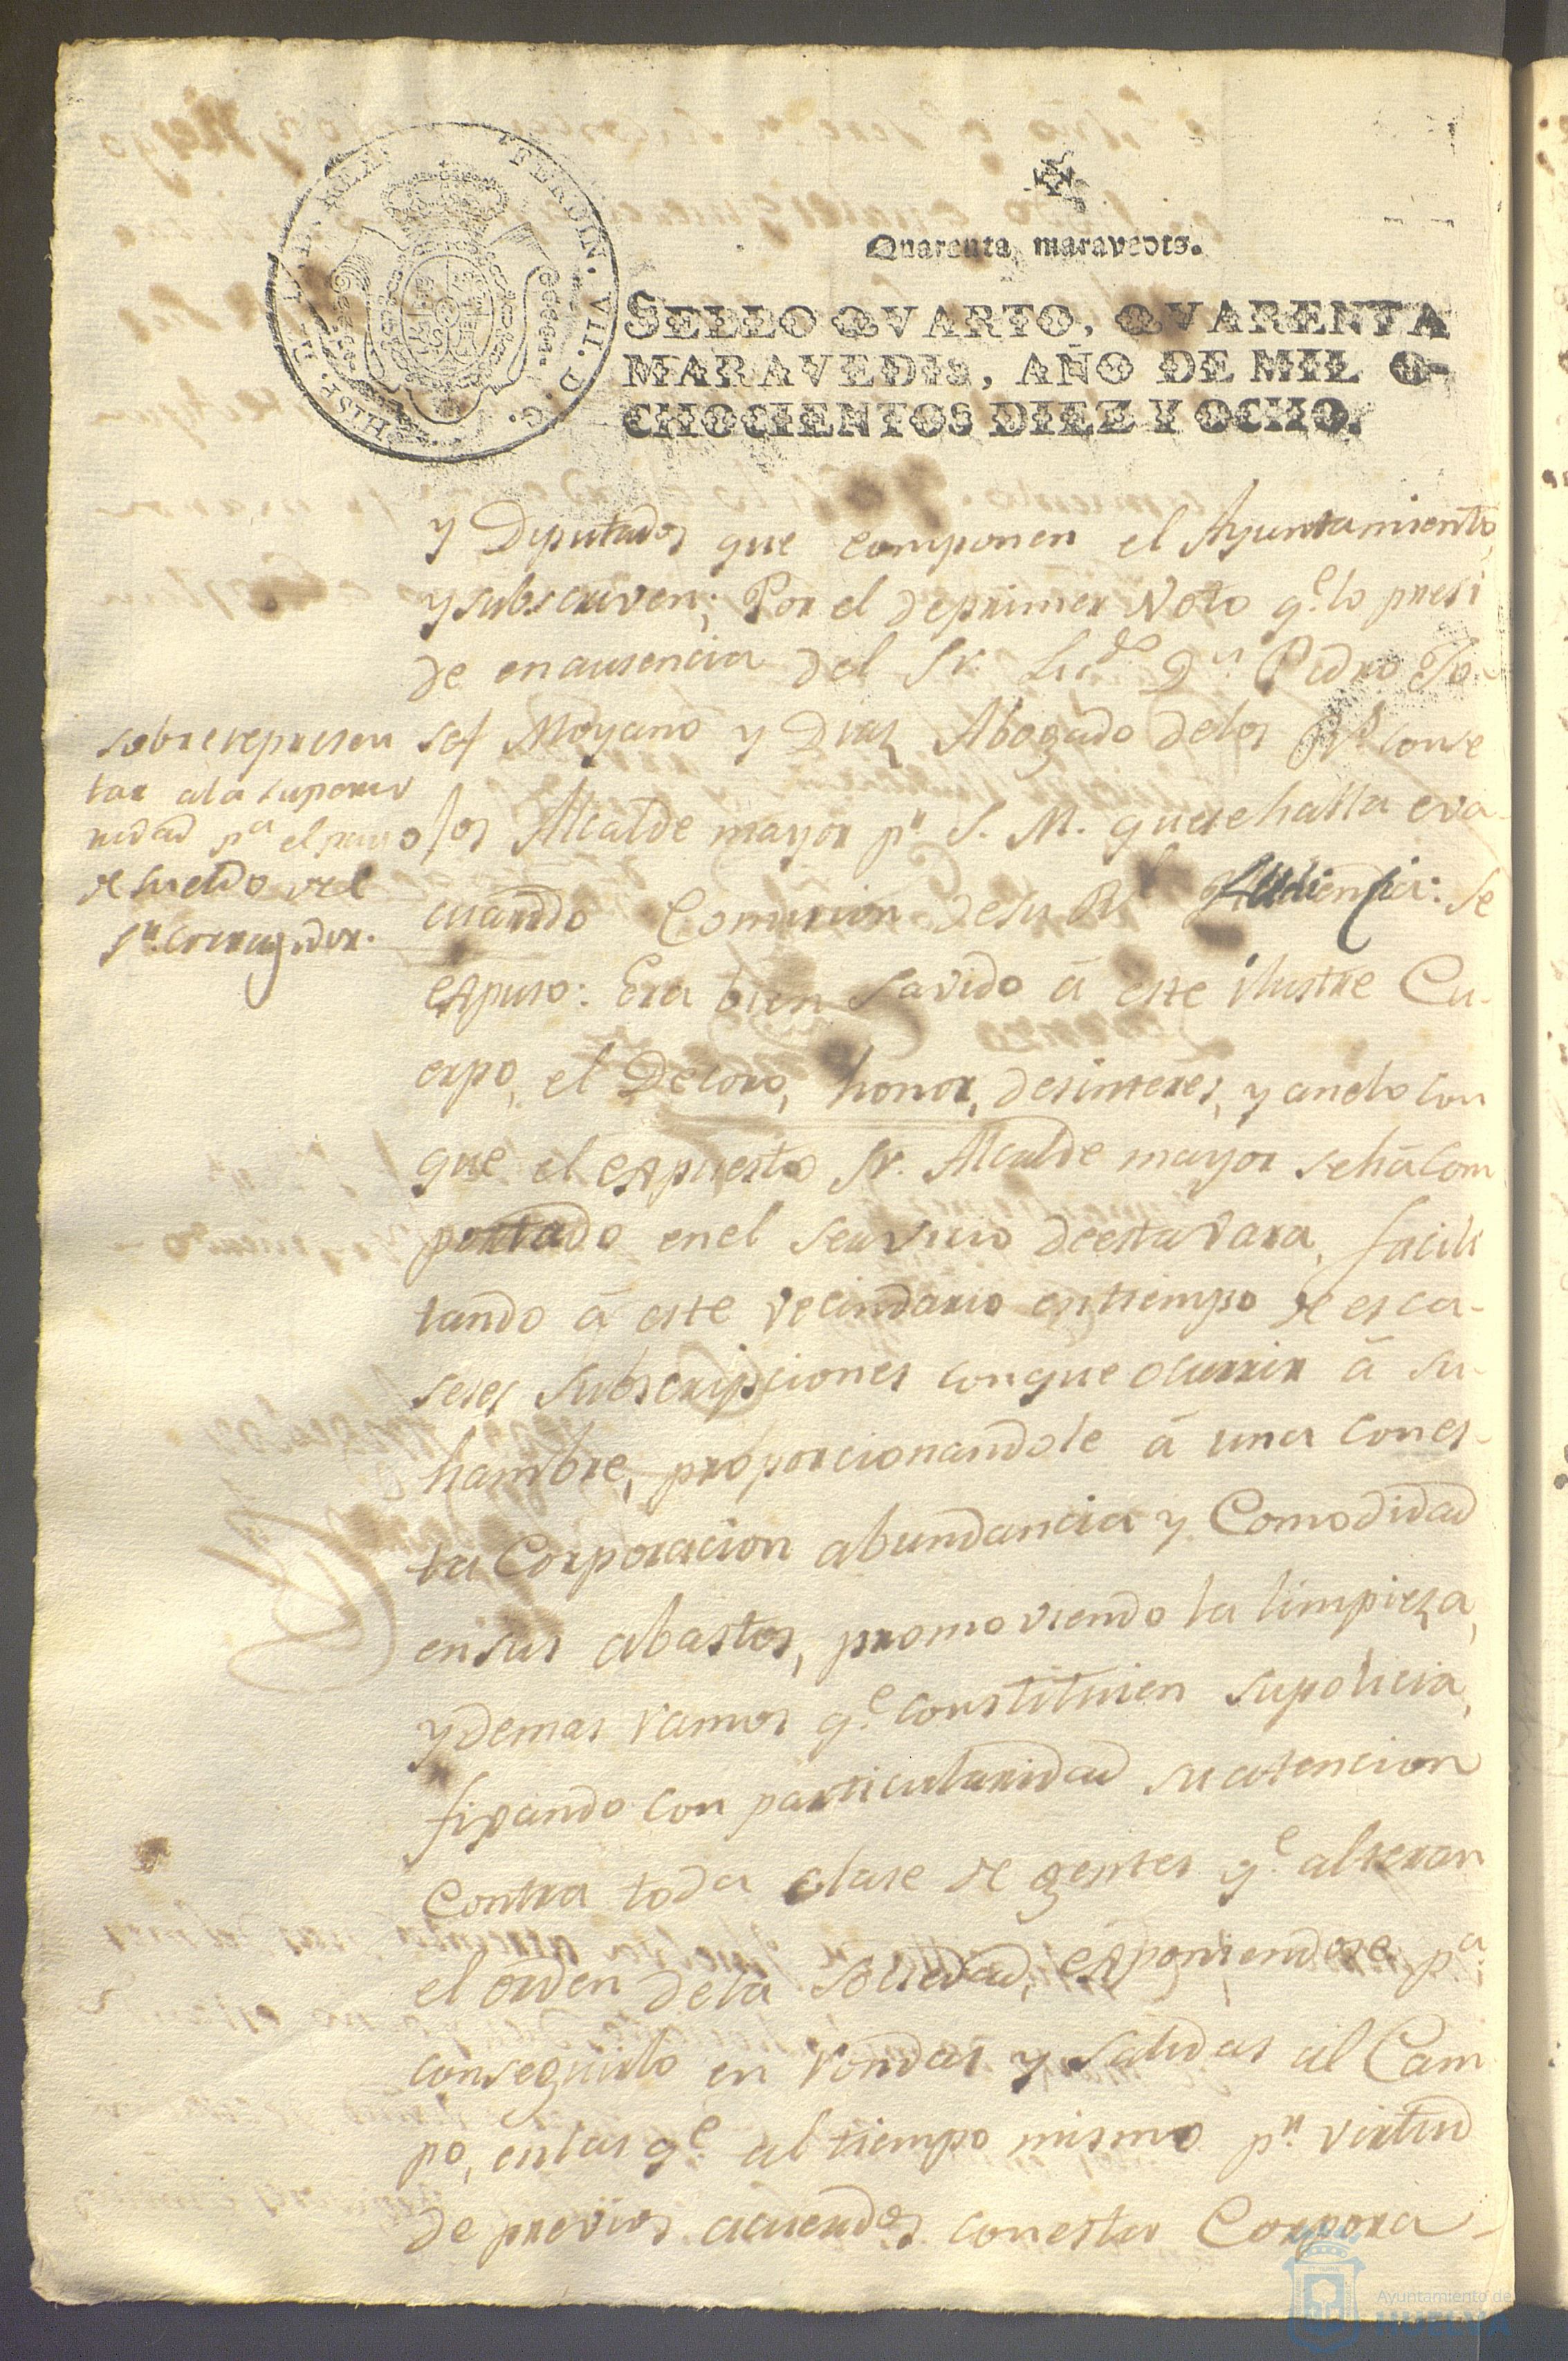 HISP. ET IND. REX. FERDIN. VII. D. G.
Quarenta maravedis.
SELLO QVARTO, QVARENTA
MARAVEDIS, AÑO DE MIL O-
CHOCIENTOS DIEZ Y OCHO.
y Diputados que componen el Ayuntamiento,
y subscriven; Por el de primer Voto q.e lo presi
de en ausencia del Sr. Lic.do D.n Pedro Jo-
sef Moyano y Diaz Abogado de los R.s Conse
jos Alcalde mayor p.r S. M. que se halla eva-
cuando Comision de su R.l Audiencia: Se
expuso: Era bien savido á este ilustre Cu-
erpo, el Decoro, honor, desinteres, y anelo con
que el expuesto Sr. Alcalde mayor se há com
portado en el servicio de esta Vara, facili
tando á este vecindario en tiempo de esca-
seses subscripciones con que ocurrir á su
hambre, proporcionandole á una con es-
ta Corporacion abundancia y Comodidad
en sus abastos, promoviendo la limpieza,
y demas ramos q.e constituien su policia,
fixando con particularidad su atencion
Contra toda clase de gentes q.e alteran
el orden de la sociedad, exponiendose p.a
conseguirlo en rondas y salidas al Cam
po, en las q.e al tiempo mismo p.r virtud
de previos acuerdos con esta Corpora-
sobre represen
tar a la superio
ridad p.a el pago
de sueldo del
S.r Corregidor.
Ayuntamiento de
HUELVA